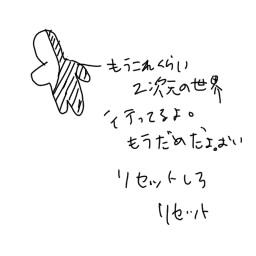 もうこれくらい
2次元の世界
行ってるよ。
もうだめだよおい
リセットしろ
リセット